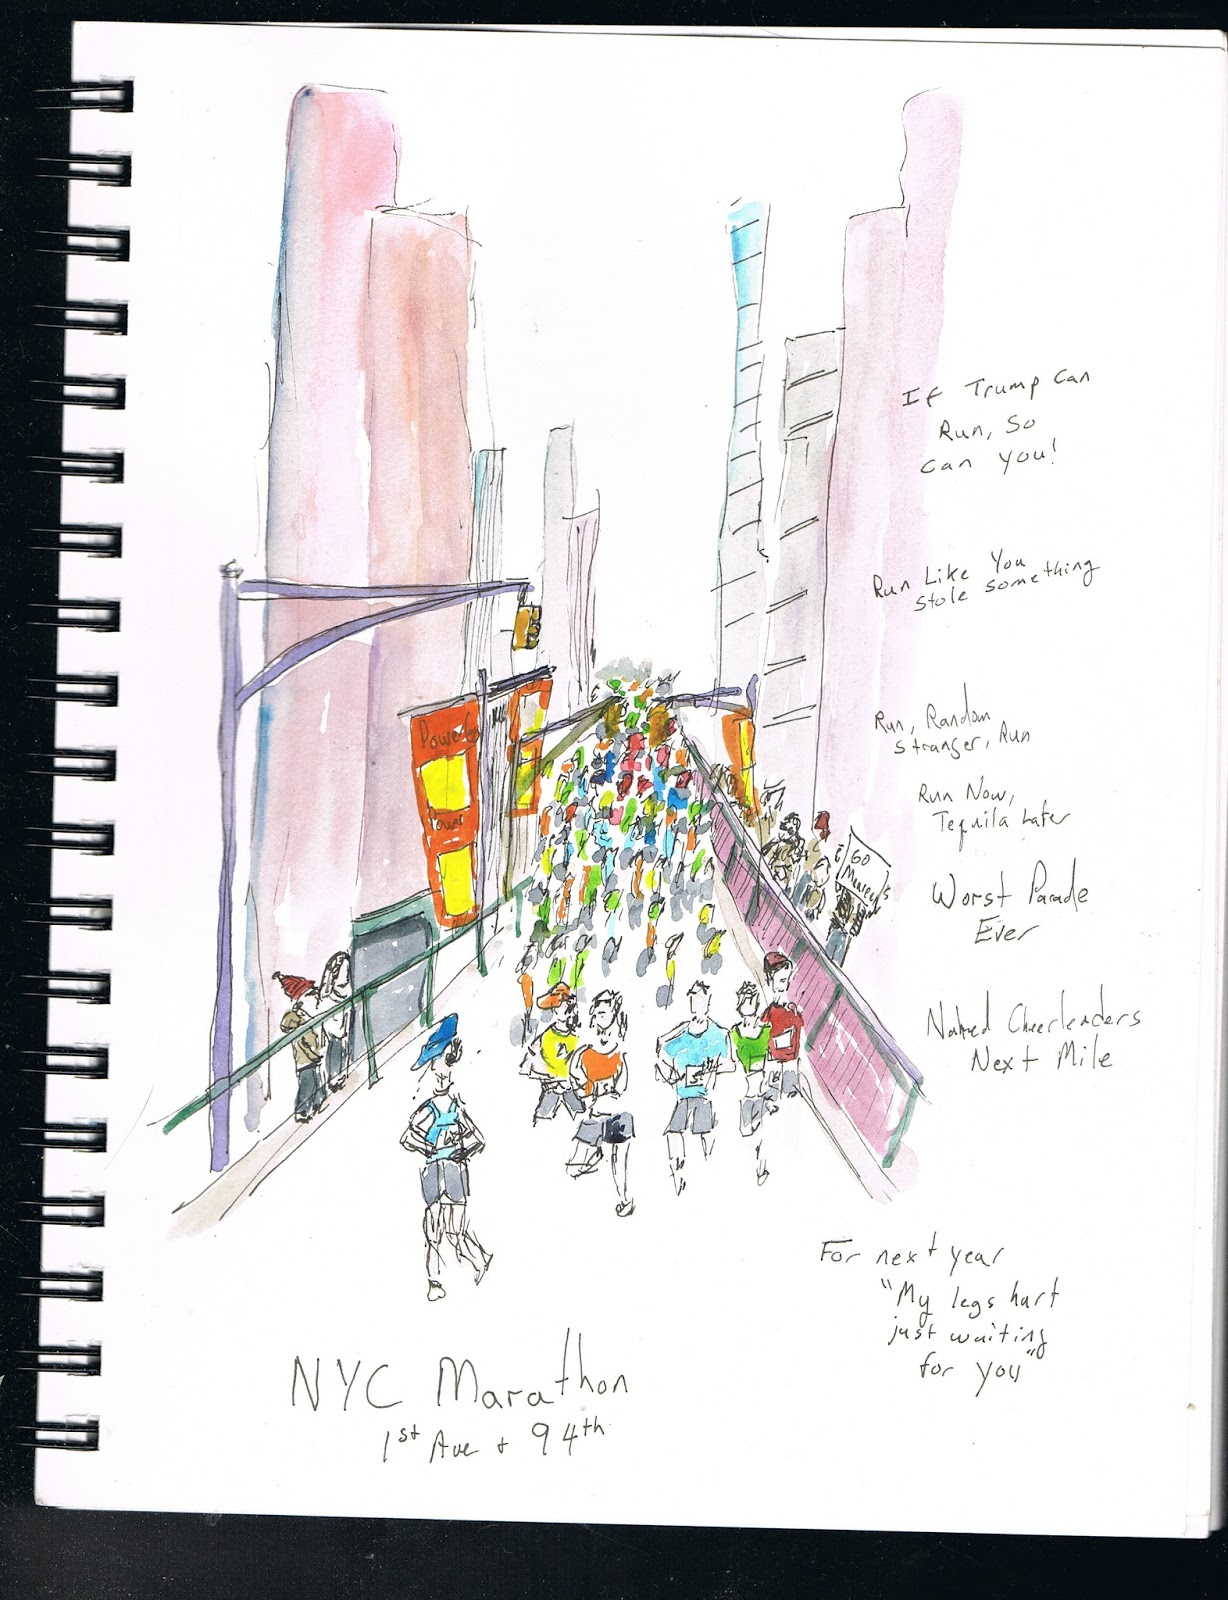 If Trump Can
Run, So
Can you!
Run Like You
Stole something
Run, Random
Stranger, Run
Run Now,
Tequila Later
Worst Parade
Ever
Naked Cheerleaders
Next Mile
Powered
Power
GO
For next year
"My legs hurt
just waiting
for you"
NYC Marathon
1st Ave + 94th